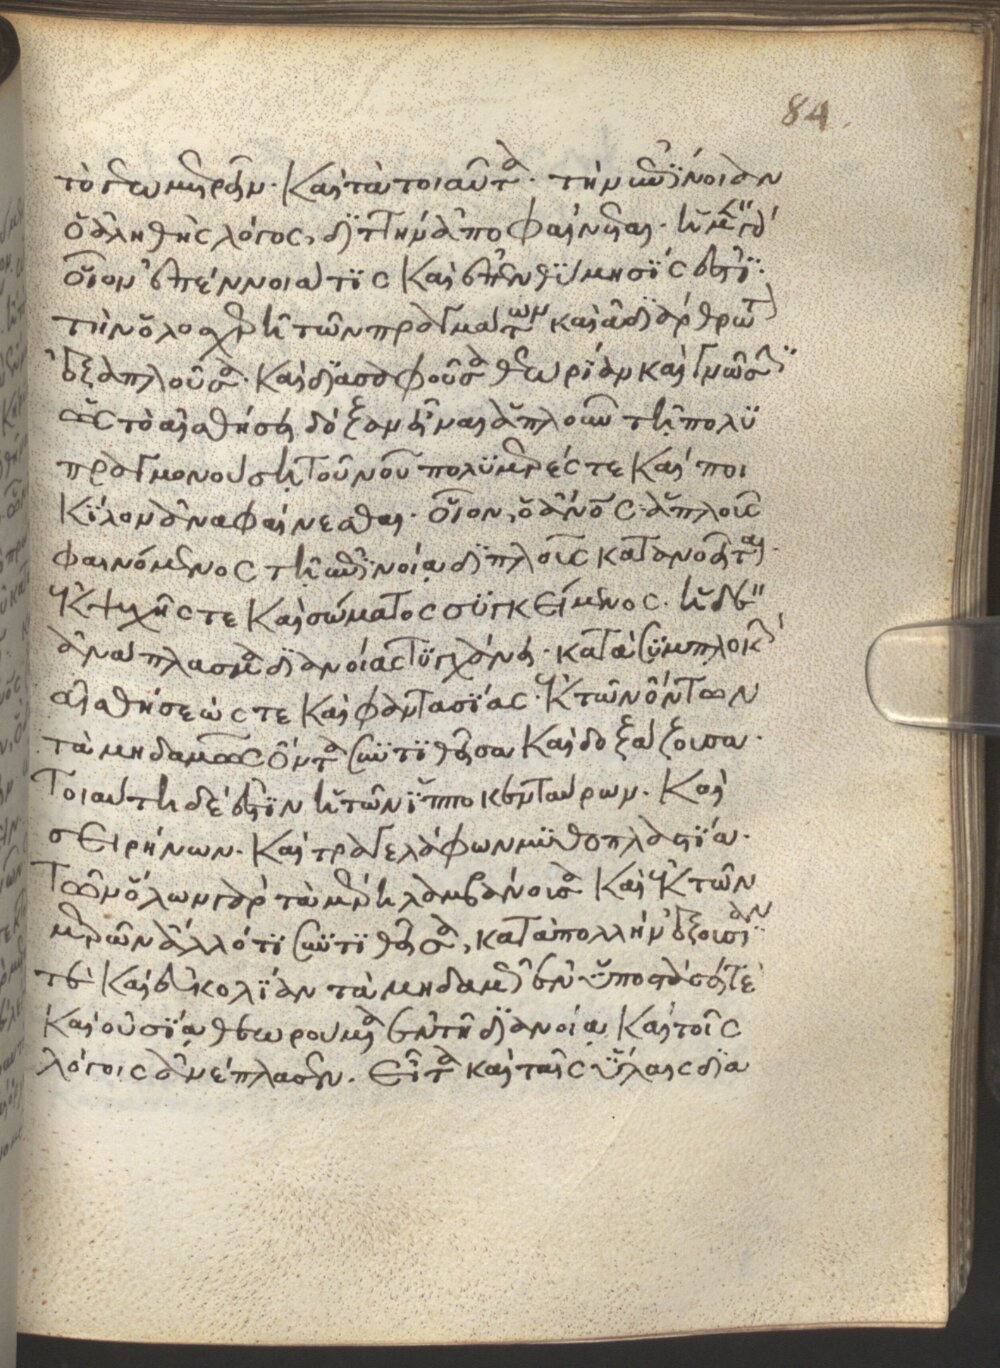 τὸ γεωμετρεῖν. Καὶ τὰ τοιαῦτα. τὴν ἐπίνοιαν
ὁ ἀληθὴς λόγος, διττὴν ἀποφαίνεται. ἡ μὲν γὰρ
οἷον ἐπέννοιά τις Καὶ ἐπενθύμησίς ἐστι.
τὴν ὁλοσχερῆ τῶν πραγμάτων καὶ ἀδιάρθρωτον
ἐξαπλοῦσα. Καὶ διασαφοῦσα θεωρίαν καὶ γνῶσιν
ὡς τὸ αἰσθήσει δόξαν εἶναι ἁπλοῦν τῇ πολυ
πραγμονούσῃ τοῦ νοῦ πολυμερές τε Καὶ ποι
Κίλον ἀναφαίνεσθαι. οἷον, ὁ ἄνος. ἁπλοῦς
φαινόμενος τῇ ἐπινοίᾳ διπλοῦς κατανοεῖται.
ἐκ ψυχῆς τε Καὶ σώματος συγκείμενος. ἡ δὲ
ἀνάπλασμα διανοίας τυγχάνει. κατὰ συμπλοκὴν
αἰσθήσεώς τε Καὶ φαντασίας. ἐκ τῶν ὄντων
τὰ μηδαμῶς ὄντα συντιθεῖσα Καὶ δοξάζουσα.
Τοιαύτη δέ ἐστιν ἡ τῶν ἱπποκενταύρων. Καὶ
σειρήνων. Καὶ τραγελάφων μυθοπλαστία.
Τῶν ὅλων γὰρ τὰ μέρη λαμβάνουσα Καὶ ἐκ τῶν
μερῶν ἄλλό τι συντιθεῖσα, κατὰ πολλὴν ἐξουσίαν
τε Καὶ εὐκολίαν τὰ μηδαμῆ ἐν ὑποστάσει τὲ
Καὶ οὐσίᾳ θεωρούμενα ἐν τῇ διανοίᾳ Καὶ τοῖς
λόγοις ἀνέπλασεν. Εἶτα καὶ ταῖς ὕλαις δια